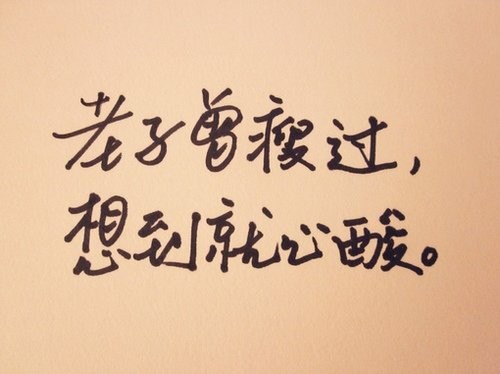 老子曾瘦过，
想到就心酸。